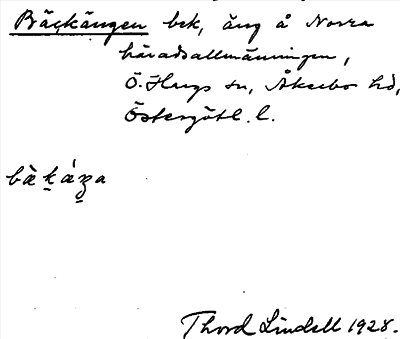 Bäckängen bek, äng å Norra
häradsallmänningen,
Ö. Husby sn, Åkerbo hd,
Östergötl. l.
Thord Lindell 1928.